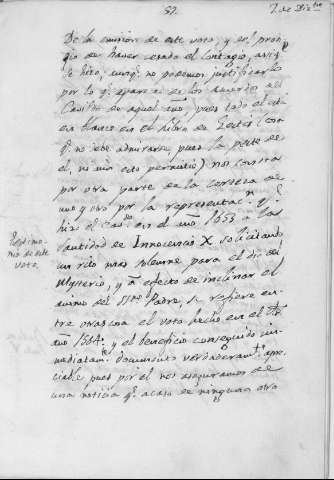 57.
2 de Dizbre
De la emision de este voto, y del prodi
gio de haver cesado el contagio, assi q.
se hizo, aunq. no podemos justificarlo
por lo q. aparece en los Acuerdos del
Cavildo en aquel año, pues todo él está
en blanco en el Libro de Actas (cosa
q. no debe admirarse, pues la peste de
él, ni aun esto permitió) nos consta
por otra parte de la certeza de
uno y otro por la representacn. q.
hizo el Cavdo. en el año 1653 a la S
antidad de Innocencio X solicitando
un rito mas solemne para el dia del
Mysterio, y a efecto de inclinar el
animo del Sto. Padre se refiere en
tre otras cosas el voto hecho en el
año 1564. y el beneficio conseguido in
mediatam.te documento verdaderam.te apre
ciable pues por él nos aseguramos de
una noticia q. acaso de ninguna otra
Testimo
nio de este
voto.